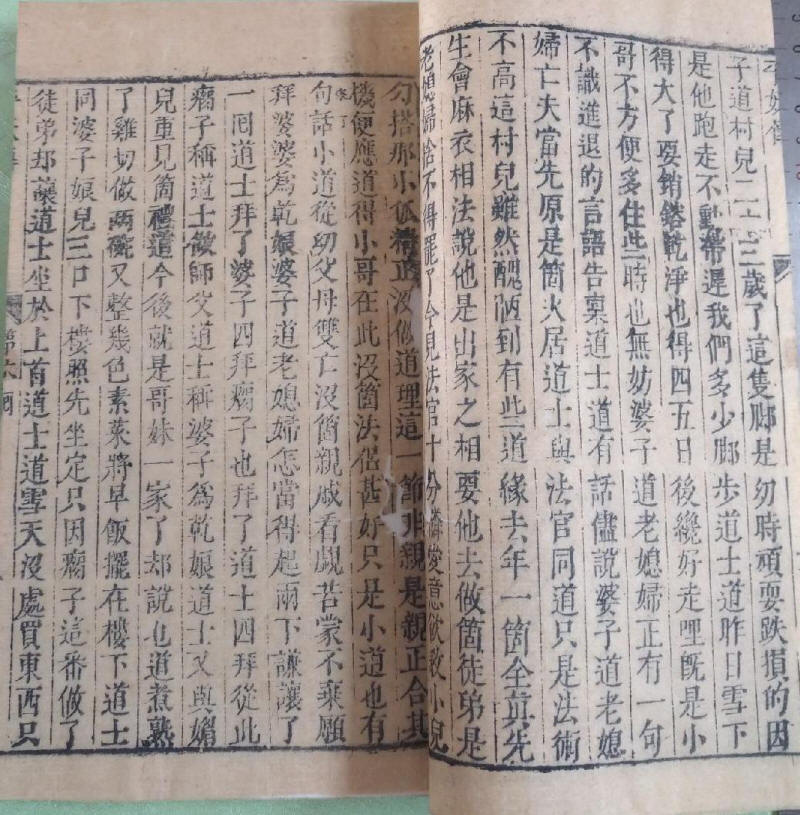 子道村兒二十三歲了這隻脚是幼時頑耍跌損的因
是他跑走不動帶遲我們多少脚步道士道昨日雪下
得大了要銷鎔乾淨也得四五日後纔好走哩旣是小
哥不方便多住些時也無妨婆子道老媳婦正有一句
不識進退的言語告禀道士道有話儘說婆子道老媳
婦亡夫當先原是箇火居道士與法官同道只是法術
不高這村兒雖然醜陋到有些道緣去年一箇全眞先
生會麻衣相法說他是出家之相要他去做箇徒弟是
老媳婦捨不得罷了今見法官十分憐愛意欲敎小兒
勾搭那小狐精正沒做道理這一節非親是親正合其
機便應道得小哥在此沒箇法侶甚好只是小道也有
句話小道從幼父母雙亡沒箇親戚看覷若蒙不棄願
拜婆婆爲乾娘婆子道老媳婦怎當得起兩下謙讓了
一囘道士拜了婆子四拜瘸子也拜了道士四拜從此
瘸子稱道士做師父道士稱婆子爲乾娘道士又與媚
兒重見箇禮道今後就是哥妹一家了却說乜道煮熟
了雞切做兩碗又整幾色素菜將早飯擺在樓下道士
同婆子娘兒三口下樓照先坐定只因瘸子這番做了
徒弟却讓道士坐於上首道士道雪天沒處買東西只